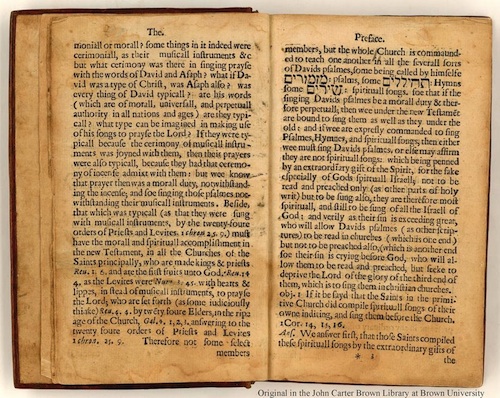 The.
moniall or morall? some things in it indeed were
cerimoniall, as their musicall instruments &c
but what cerimony was there in singing prayse
with the words of David and Asaph? what if Da-
vid was a type of Christ, was Asaph also? was
every thing of David typicall? are his words
(which are of morall, universall, and perpetuall
authority in all nations and ages) are they typi-
call? what type can be imagined in making use
of his songs to prayse the Lord? If they were ty-
picall because the cerimony of musicall instru-
ments was joyned with them, then their prayers
were also typicall, because they had that ceremo-
ny of incense admixt with them: but wee know
that prayer then was a morall duty, notwithstand-
ing the incense; and soe singing those psalmes not-
withstanding their musicall instruments. Beside,
that which was typicall (as that they were sung
with musicall instruments, by the twenty-foure
orders of Priests and Levites. 1 chron 25. 9.) must
have the morall and spirituall accomplishment in
the new Testament, in all the Churches of the
Saints principally, who are made kings & priests
Reu. 1. 6. and are the first fruits unto God. Reu. 14
4. as the Levites were Num. 3. 45. with hearts &
lippes, in stead of musicall instruments, to prayse
the Lord; who are set forth (as some iudiciously
thinke) Reu. 4. 4. by twety foure Elders, in the ripe
age of the Church, Gal. 4. 1, 2, 3. answering to the
twenty foure orders of Priests and Levites
1. chron. 25. 9. Therefore not some select
members
Preface.
members, but the whole Church is commaund-
ed to teach one another in all the severall sorts
of Davids psalmes, some being called by himselfe
מזמורים: psalms, some תהלים: Hymns
some שירים: spirituall songs. soe that if the
singing Davids psalmes be a morall duty & ther-
fore perpetuall; then wee under the new Testamēt
are bound to sing them as well as they under the
old: and if wee are expresly commanded to sing
Psalmes, Hymnes, and spirituall songs, then either
wee must sing Davids psalmes, or else may affirm
they are not spirituall songs: which being penned
by an extraordiary gift of the Spirit, for the sake
especially of Gods spirituall Israell; not to be
read and preached only (as other parts of holy
writ) but to be sung also, they are therefore most
spirituall, and still to be sung of all the Israell of
God: and verily as their sin is exceeding great,
who will allow Davids psalmes (as other scrip-
tures) to be read in churches (which is one end)
but not to be preached also, (which is another end
soe their sin is crying before God, who will al-
low them to be read and preached, but seeke to
deprive the Lord of the glory of the third end of
them, which is to sing them in christian churches.
obj. 1 If it be sayd that the Saints in the primi-
tive Church did compile spirituall songs of their
owne inditing, and sing them before the Church.
1 Cor. 14, 15, 16.
Ans. We answer first, that those Saints compiled
these spirituall songs by the extraordinary gifts of
* 3 the
Original in the John Carter Brown Library at Brown University